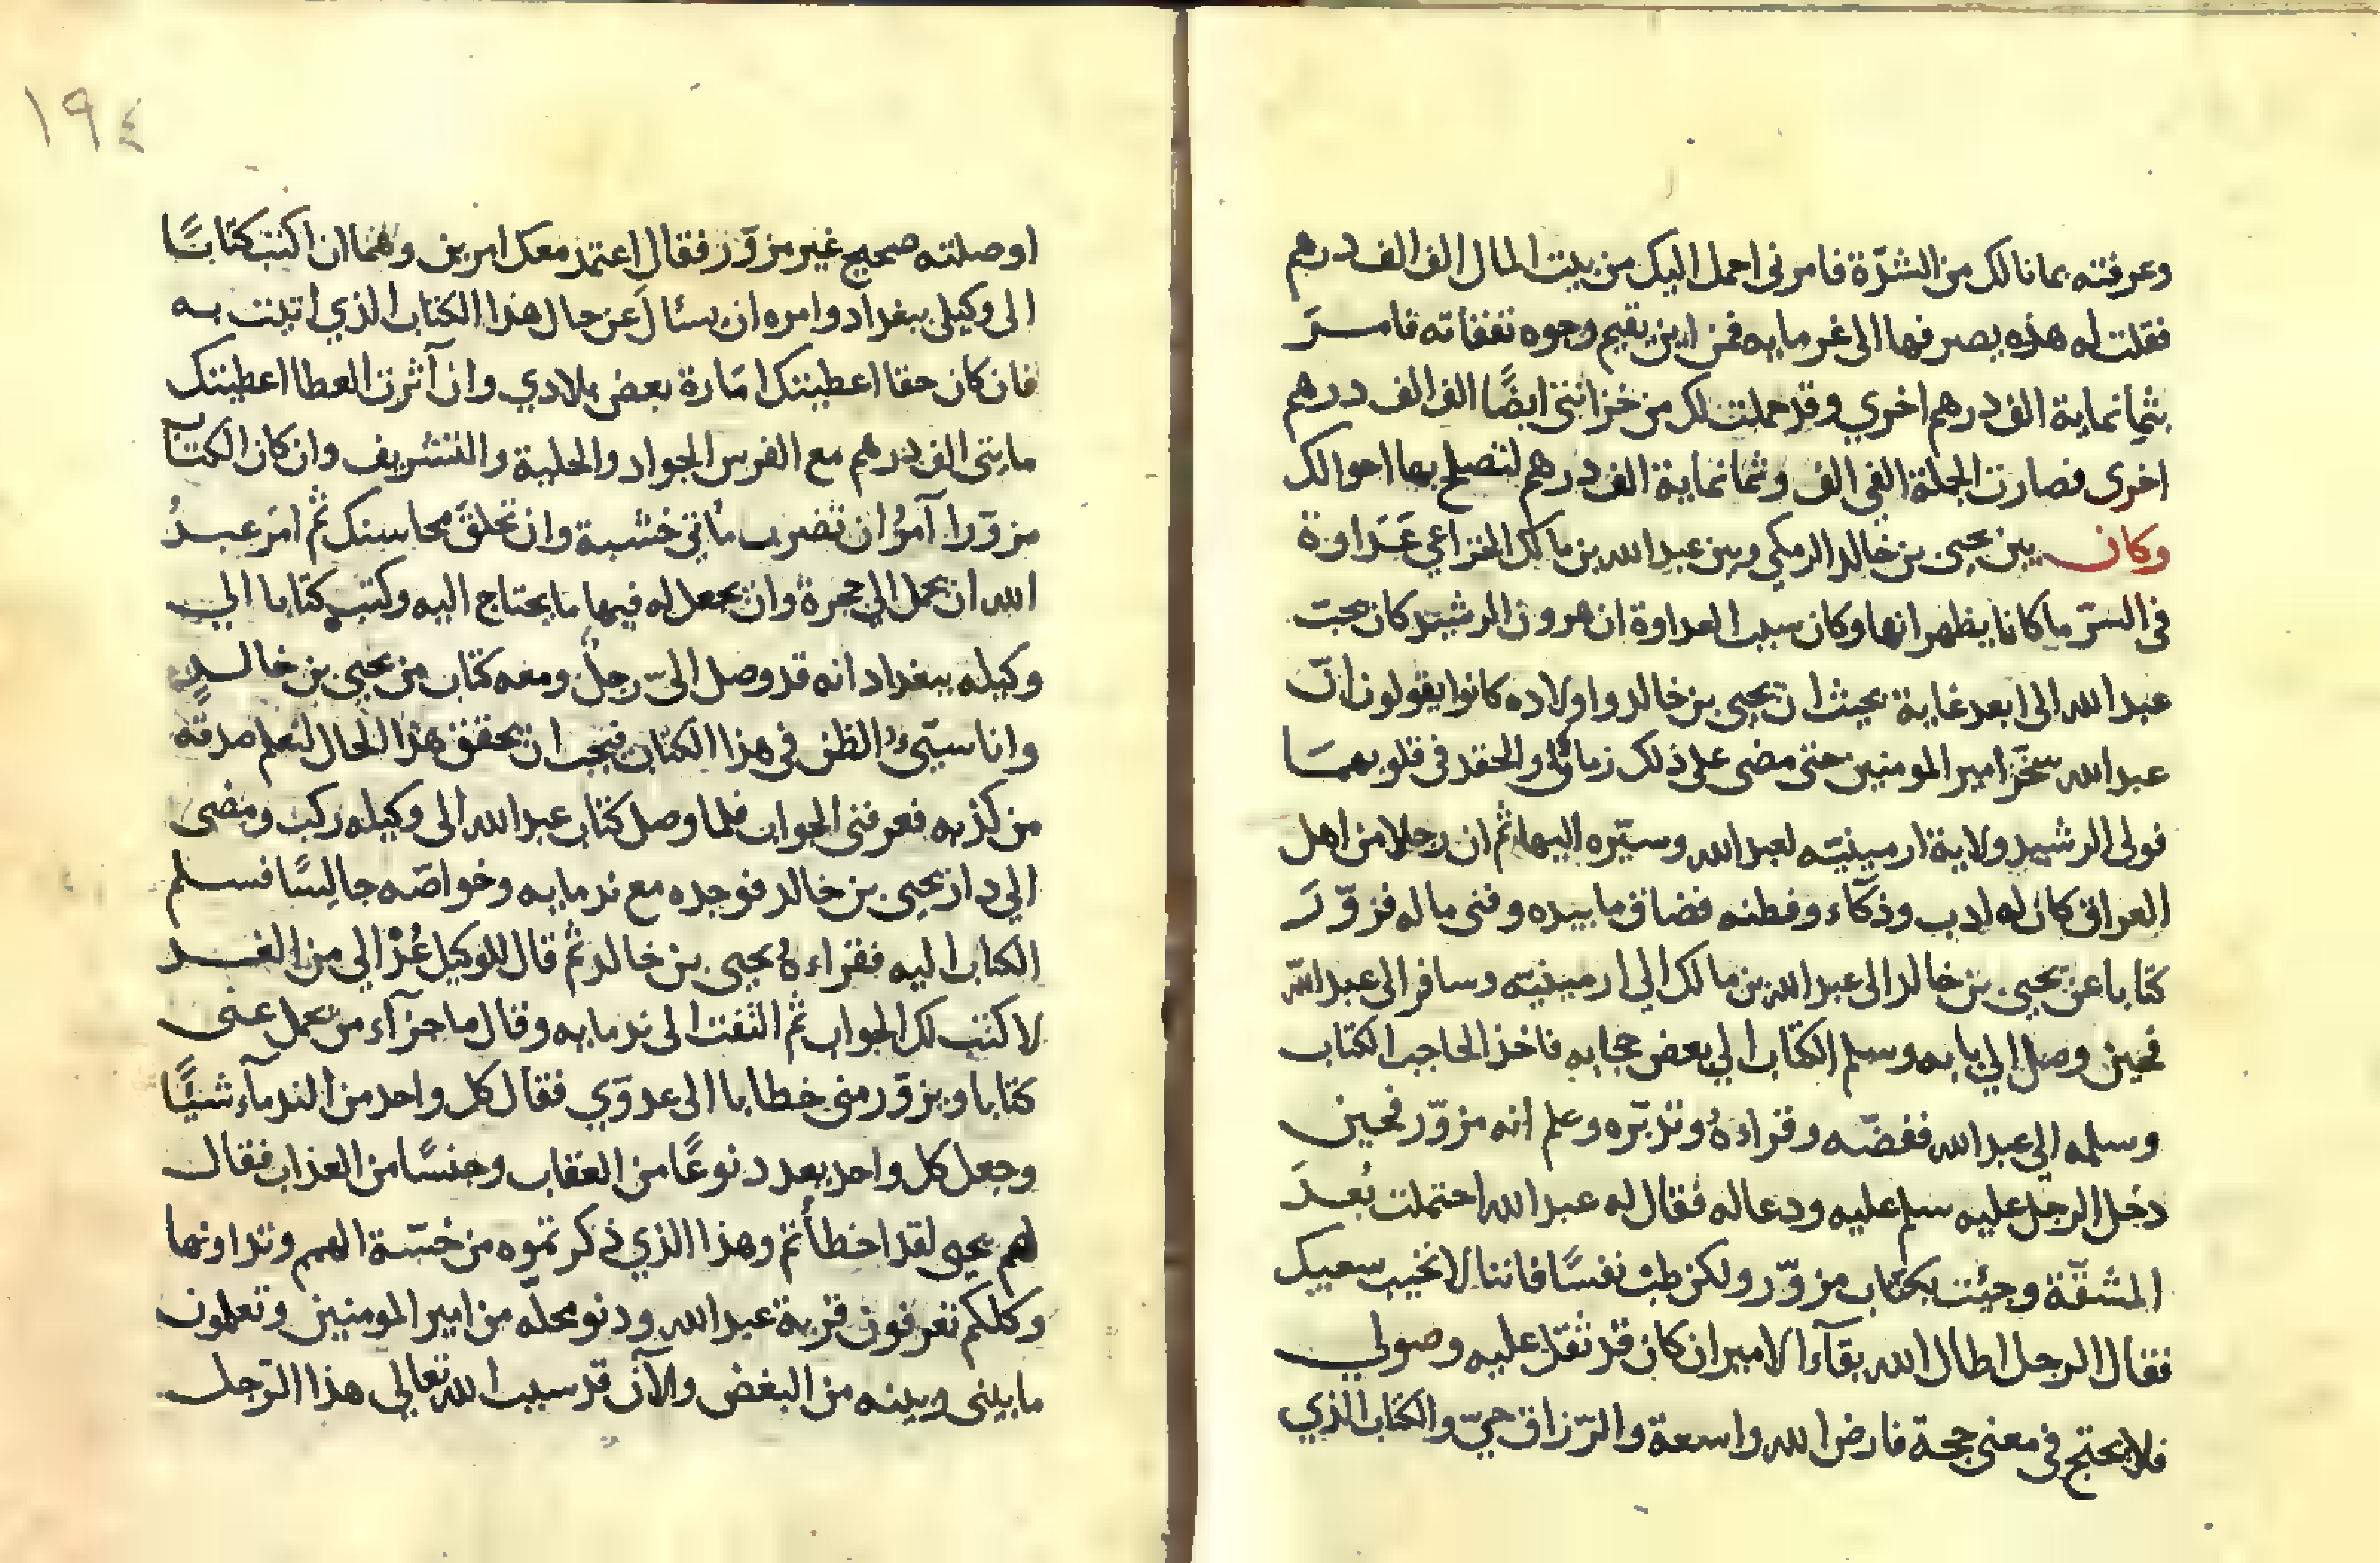 وعرفته بما نالك من الشدّة فامرني احمل اليك من بيت المال الف الف درهم
فقلت له هذه يصرفها الى غرمايه فمن اين يقيم وجوه نفقاته فامرَ
بثمانماية الف درهم اخري وقد حملت لك من خزانتي ايضًا الف الف درهم
اخرى فصارت الجملة الفي الف وثمانماية الف درهم لتصلح بها احوالك
وكان بين يحيى بن خالد البرمكي وبين عبد الله بن مالك الخزاعي عَدَاوة
في السّر ما كانا يظهرانها وكان سبب العداوة ان هرون الرشيد كان يحبّ
عبد الله الى ابعد غاية بحيث ان يحيى بن خالد واولاده كانوا يقولون انّ
عبد الله سَحَر امير المومنين حتى مضى على ذلك زمانٌ والحقد في قلوبهمَا
فولى الرشيد ولاية ارمينيّه لعبد الله وسيّره اليها ثم ان رجلا من اهل
العراق كان له ادب وذكآء وفطنه فضاق ما بيده وفنى ماله فزوّرَ
كتابا عن يحيى بن خالد الى عبد الله بن مالك الي ارمينيّه وسافر الى عبد الله
فحين وصل الي بابه وسلم الكتاب الي بعض حجابه فاخذ الحاجب الكتاب
وسلمه الي عبد الله ففضّه وقراءهُ وتدبّره وعلم انه مزوّر فحين
دخل الرجل عليه سلم عليه ودعا له فقال له عبد الله احتملت بُعدَ
المشقّة وجيئت بكتاب مزوّر ولكن طب نفسًا فاننا لا نخيب سعيك
فقال الرجل اطال الله بقآء الامير ان كان قد ثقل عليه وصولي
فلا يحتج في معنى حجة فارض الله واسعة والرّزاق حيّ والكتاب الذي
١٩٤
اوصلته صحيح غير مزوّر فقال اعتمد معك امرين وهما ان اكتب كتابًا
الى وكيلي ببغداد وامره ان يسئال عن حال هذا الكتاب الذي اتيت به
فان كان حقا اعطيتك امَارة بعض بلادي وان آثرت العطا اعطيتك
مايتى الف درهم مع الفرس الجواد والحلية والتشريف وان كان الكتاب
مزوّرا آمرُ ان تضرب مأتي خشبة وان تحلقَ محاسنك ثم امَر عبدُ
الله ان يحمل الي حجرة وان يجعل له فيها ما يحتاج اليه وكتب كتابا الي
وكيله ببغداد انه قد وصل اليّ رجلٌ ومعه كتاب من يحيى بن خالدٍ
وانا سيّئُ الظن في هذا الكتاب فيجب ان يحقق هذا الحال لتعلم صدقه
من كذبه فعرفني الجواب فلما وصل كتاب عبد الله الى وكيله ركب ومضى
الي دار يحيى بن خالد فوجده مع ندمايه وخواصّه جالِسًا فسلم
الكتاب اليه فقراءهُ يحيى بن خالد ثم قال للوكيل عُدْ الي من الغد
لاكتب لك الجواب ثم التفت الى ندمايه وقال ما جزآء من يحمل عنى
كتابا ويزوّر مني خطابا الى عدوّي فقال كل واحد من الندمآء شيئًا
وجعل كل واحد يعدد نوعًا من العقاب وجنسًا من العذاب فقال
لهم يحيى لقد اخطأتم وهذا الذي ذكرتموه من خسّة الهمم وتداونها
وكلكم تعرفون قربة عبد الله ودنو محلّه من امير المومنين وتعلمون
ما بيني وبينه من البغض والآن قد سبب الله تعالي هذا الرّجل